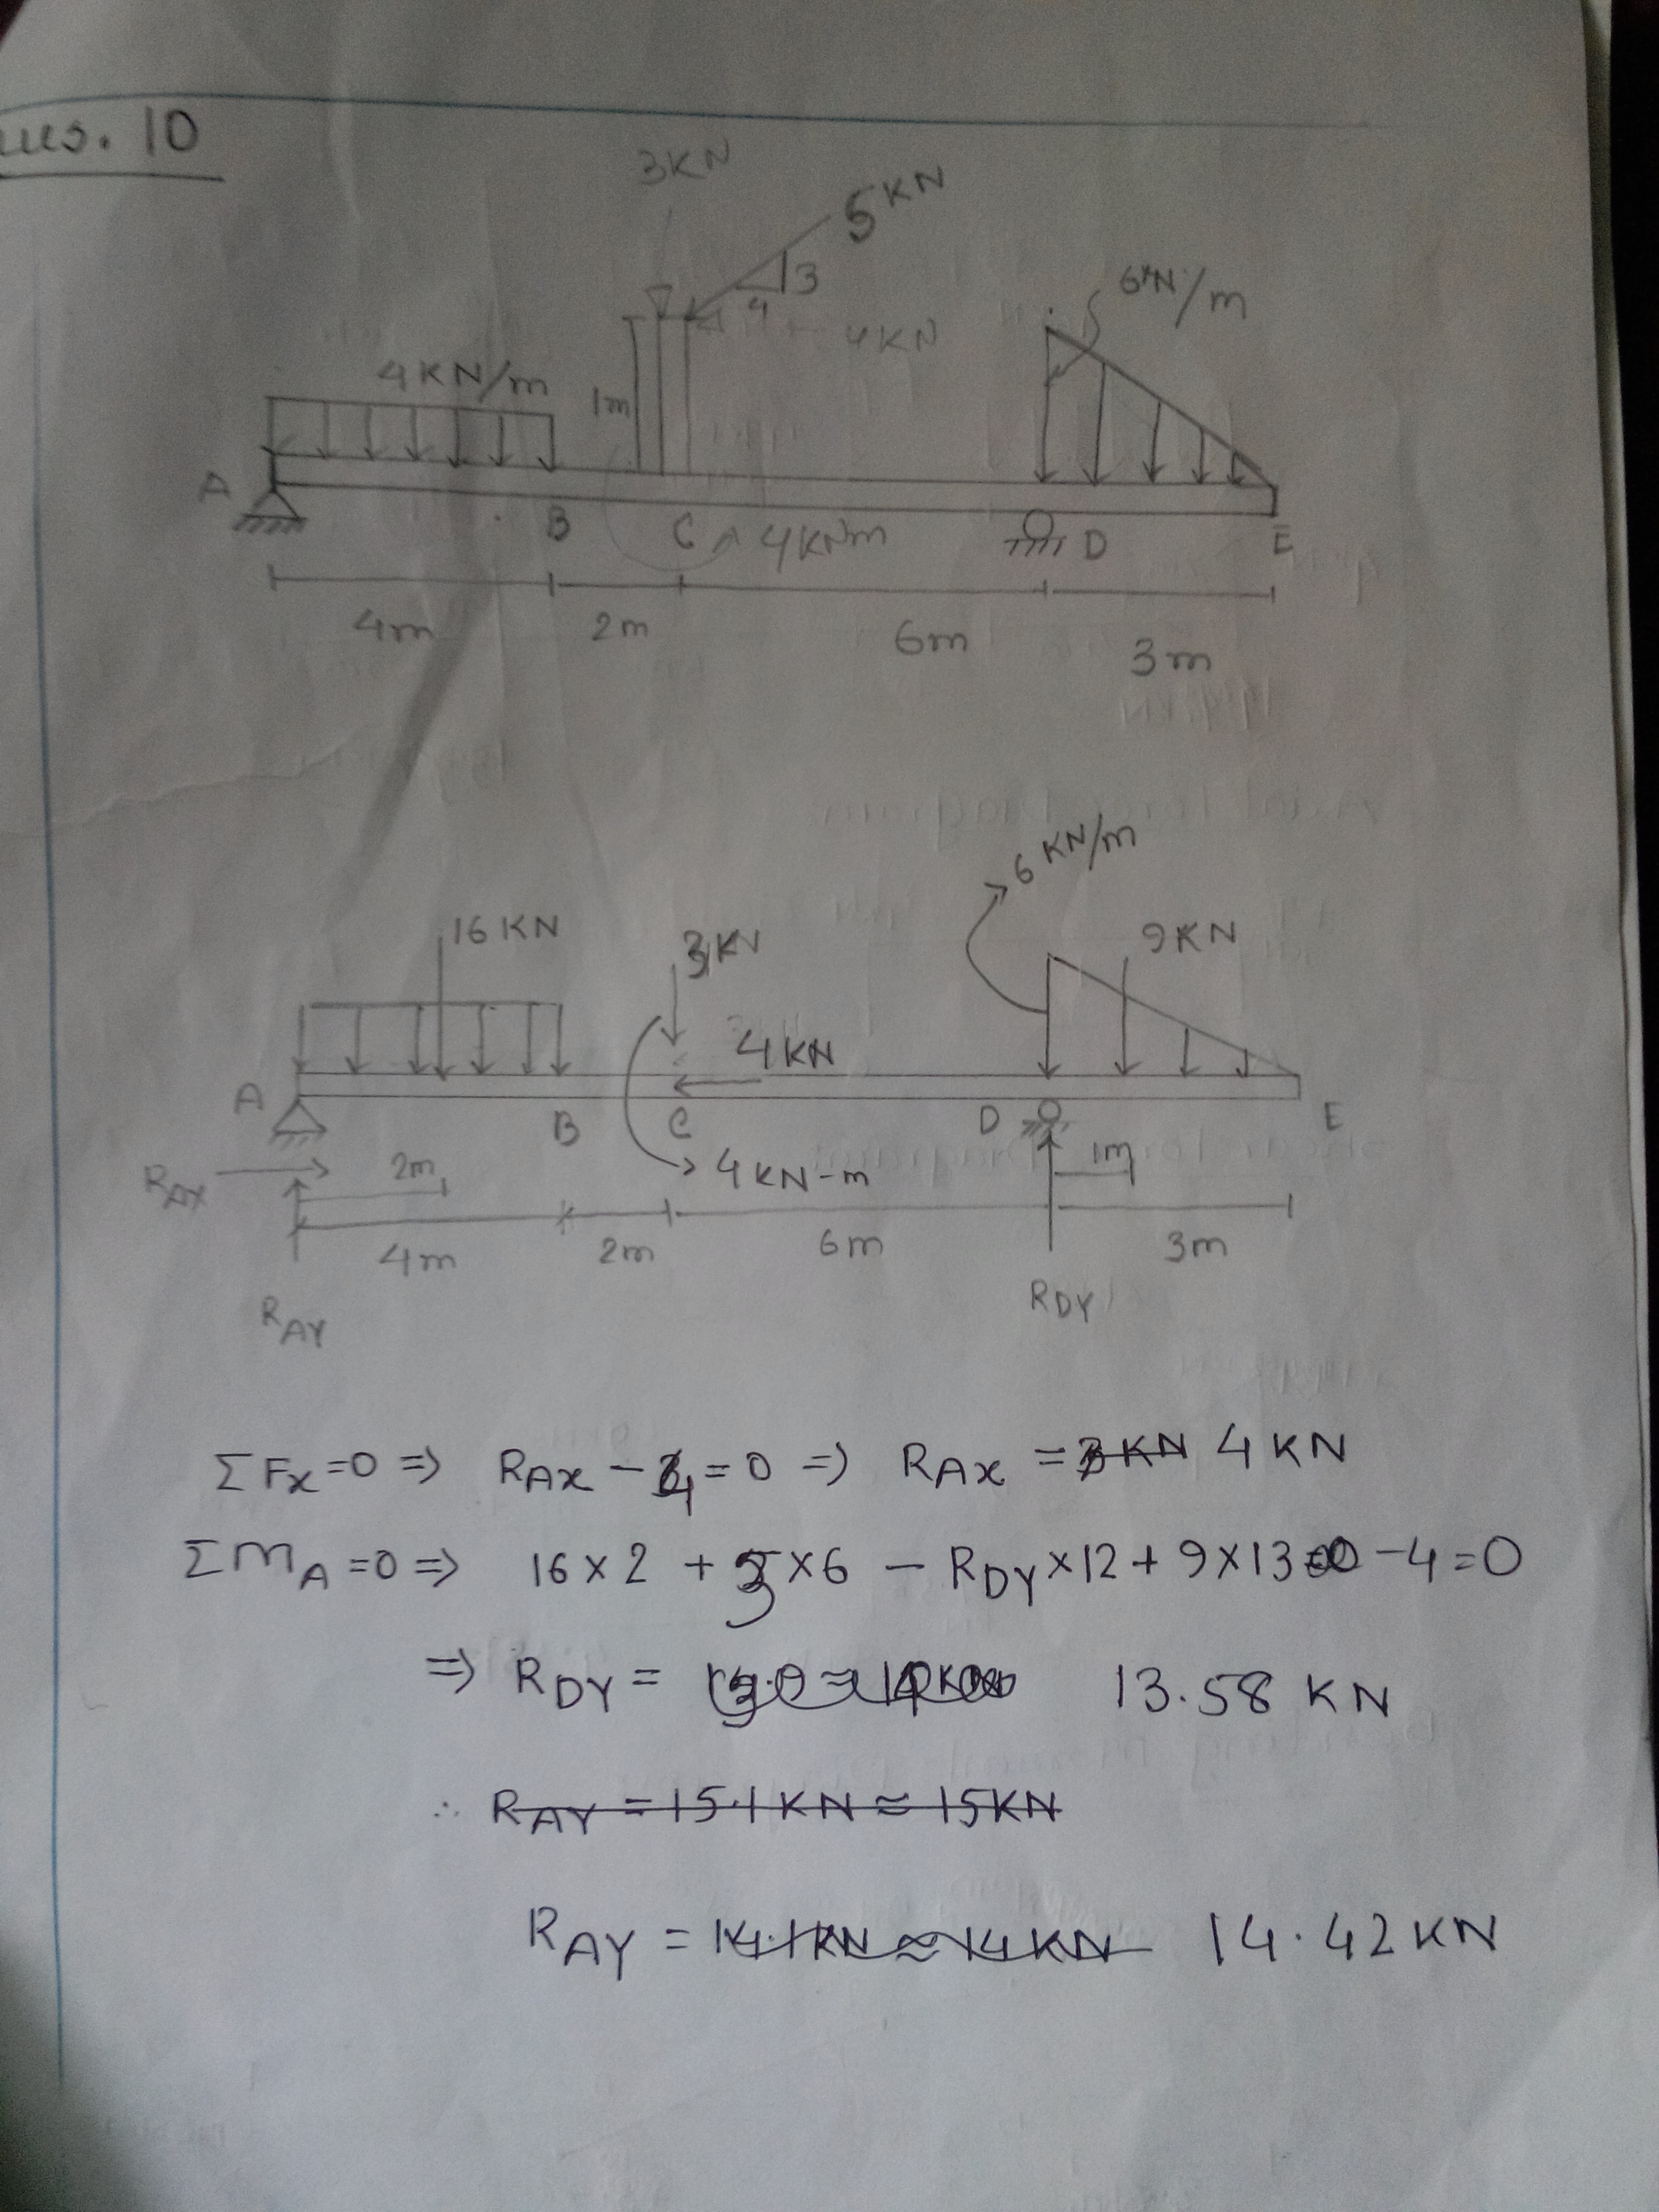 ues. 10
3KN
5KN
3
4
4KN
6KN/m
4KN/m
1m
A
B
C
4KNm
D
E
4m
2m
6m
3m
6 KN/m
16 KN
3KN
9KN
4KN
A
B
C
D
E
RAX
2m
4KN-m
1m
4m
2m
6m
3m
RAY
RDY
ΣFx=0 => RAx - 4 = 0 => RAx = 3KN 4KN
ΣMA=0 => 16×2 + 3×6 - RDY×12 + 9×13 - 4=0
=> RDY = 13.58 KN
∴ RAY = 15.1KN ≈ 15KN
RAY = 14.1KN ≈ 14KN 14.42KN